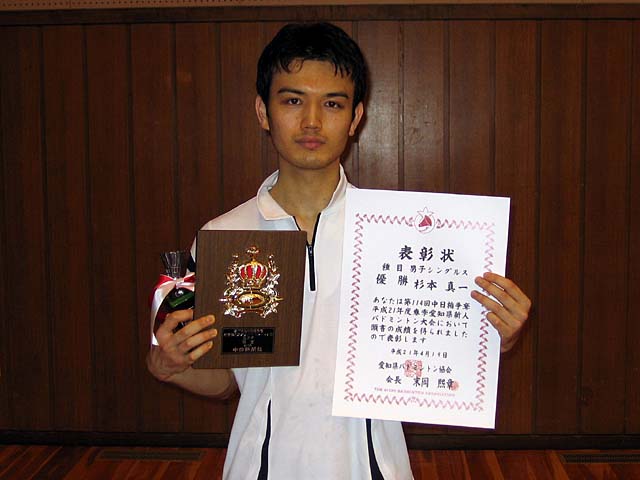 表彰状
種目 男子シングルス
優勝 杉本 真一
あなたは第114回中日指争寮
平成21年度春季愛知県新人
バドミントン大会において
頭書の成績を得られました
ので表彰します
平成21年4月19日
愛知県バドミントン協会
会長 末岡 熙章
THE AICHI BADMINTON ASSOCIATION
中日新聞社